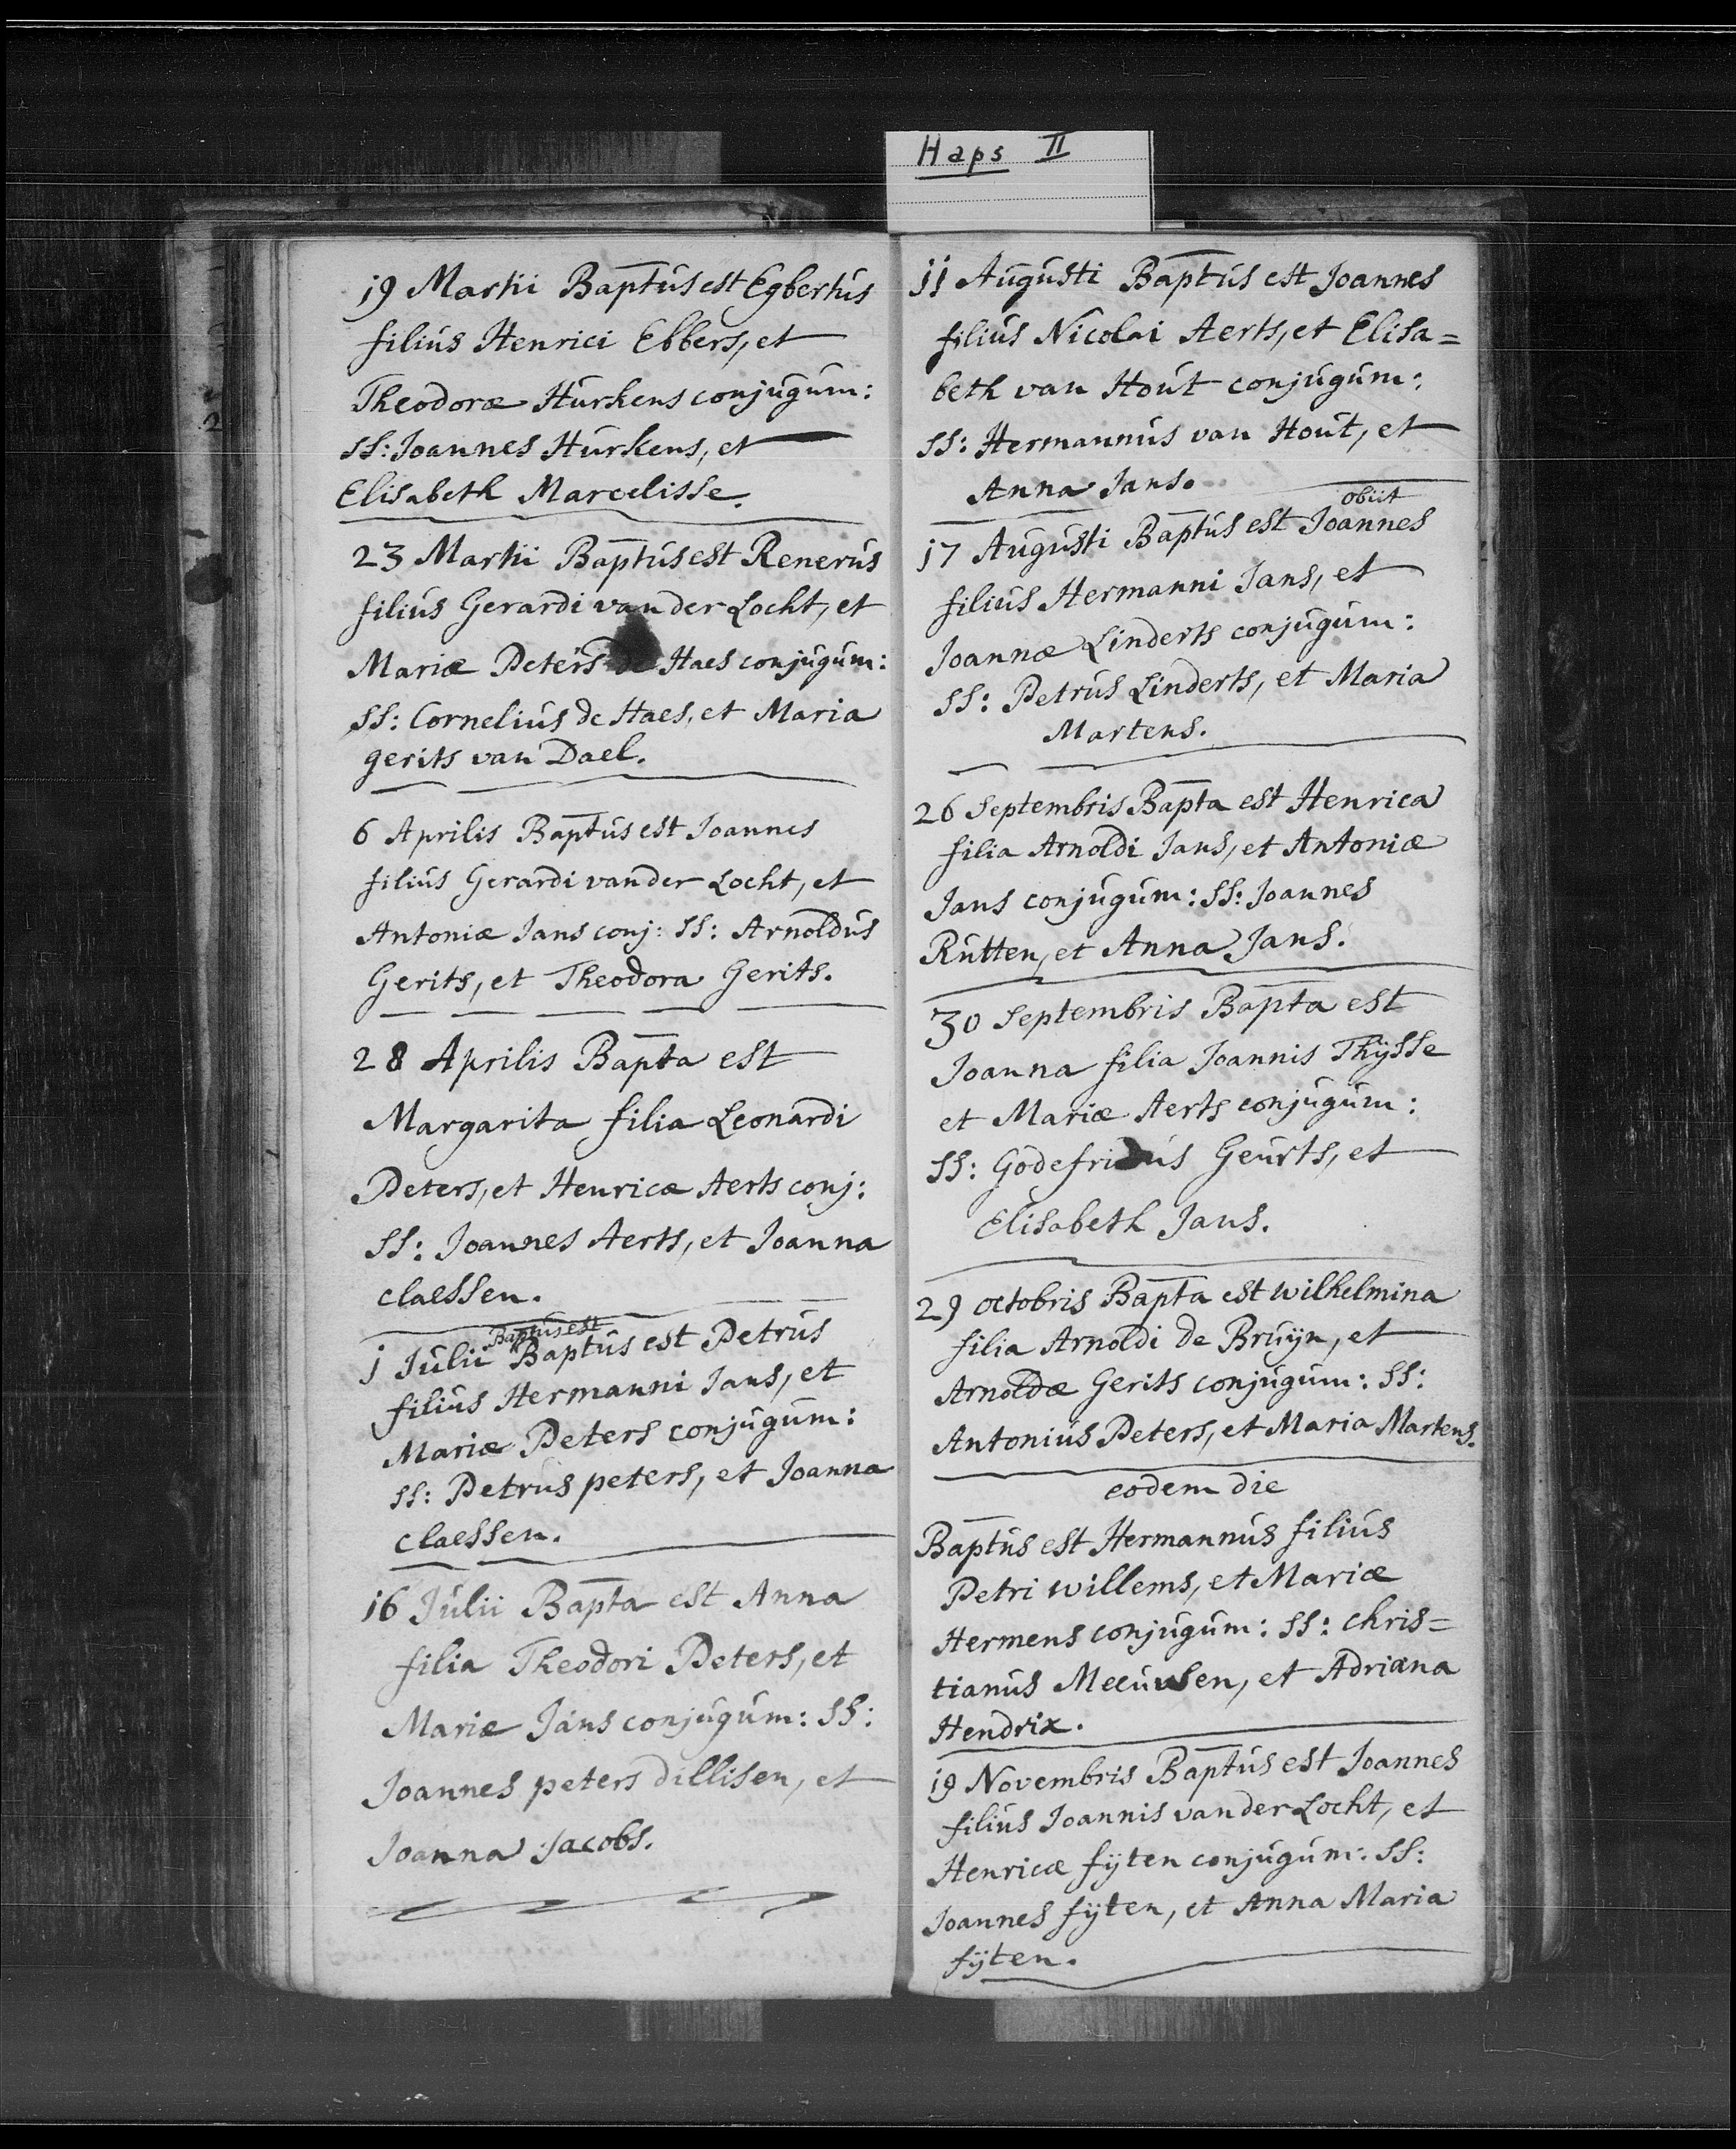 Haps II
19 Martii Baptus est Egbertus
filius Henrici Ebbers, et
Theodoræ Hurkens conjugum:
SS: Joannes Hurkens, et
Elisabeth Marcelisse.
23 Martii Baptus est Renerus
filius Gerardi van der Locht, et
Mariæ Peters de Haes conjugum:
SS: Cornelius de Haes, et Maria
gerits van Dael.
6 Aprilis Baptus est Joannes
filius Gerardi van der Locht, et
Antoniæ Jans conj: SS: Arnoldus
Gerits, et Theodora Gerits.
28 Aprilis Bapta est
Margarita filia Leonardi
Peters, et Henricæ Aerts conj:
SS: Joannes Aerts, et Joanna
claessen.
Baptus est
1 Julii Baptus est Petrus
filius Hermanni Jans, et
Mariæ Peters conjugum:
SS: Petrus peters, et Joanna
claessen.
16 Julii Bapta est Anna
filia Theodori Peters, et
Mariæ Jans conjugum: SS:
Joannes peters dillisen, et
Joanna Jacobs.
11 Augusti Baptus est Joannes
filius Nicolai Aerts, et Elisa=
beth van Hout conjugum:
SS: Hermannus van Hout, et
Anna Jans.
obiit
17 Augusti Baptus est Joannes
filius Hermanni Jans, et
Joannæ Linderts conjugum:
SS: Petrus Linderts, et Maria
Martens.
26 Septembris Bapta est Henrica
filia Arnoldi Jans, et Antoniæ
Jans conjugum: SS: Joannes
Rutten, et Anna Jans.
30 Septembris Bapta est
Joanna filia Joannis Thÿsse
et Mariæ Aerts conjugum:
SS: Godefridus Geurts, et
Elisabeth Jans.
29 octobris Bapta est wilhelmina
filia Arnoldi de Bruÿn, et
Arnoldæ Gerits conjugum: SS:
Antonius Peters, et Maria Martens.
eodem die
Baptus est Hermannus filius
Petri willems, et Mariæ
Hermens conjugum: SS: chris=
tianus Meeuwsen, et Adriana
Hendrix.
19 Novembris Baptus est Joannes
filius Joannis van der Locht, et
Henricæ fÿten conjugum: SS:
Joannes fÿten, et Anna Maria
fÿten.